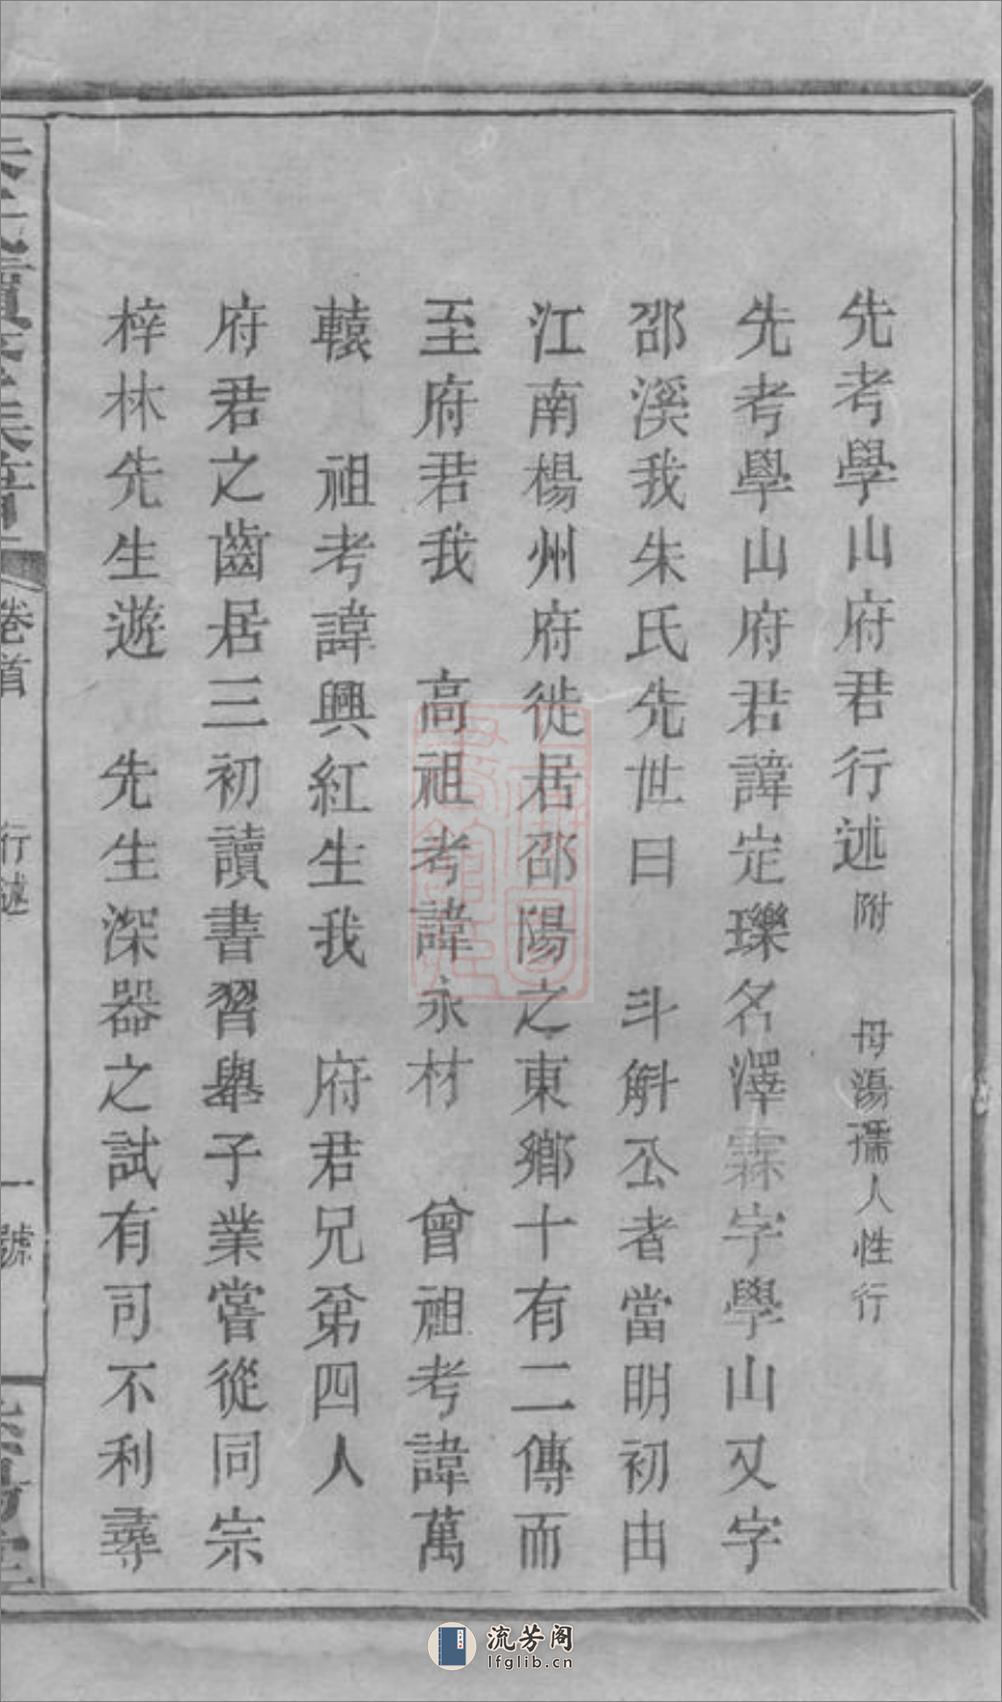 先考學山府君行述附 母湯孺人性行
先考學山府君諱定瓅名澤霖字學山又字
邵溪我朱氏先世曰 斗斛公者當明初由
江南楊州府徙居邵陽之東鄉十有二傳而
至府君我 高祖考諱永材 曾祖考諱萬
轅 祖考諱興紅生我 府君兄弟四人
府君之齒居三初讀書習舉子業嘗從同宗
梓林先生遊 先生深器之試有司不利尋
卷首 行述 一號
流芳阁
lfglib.cn